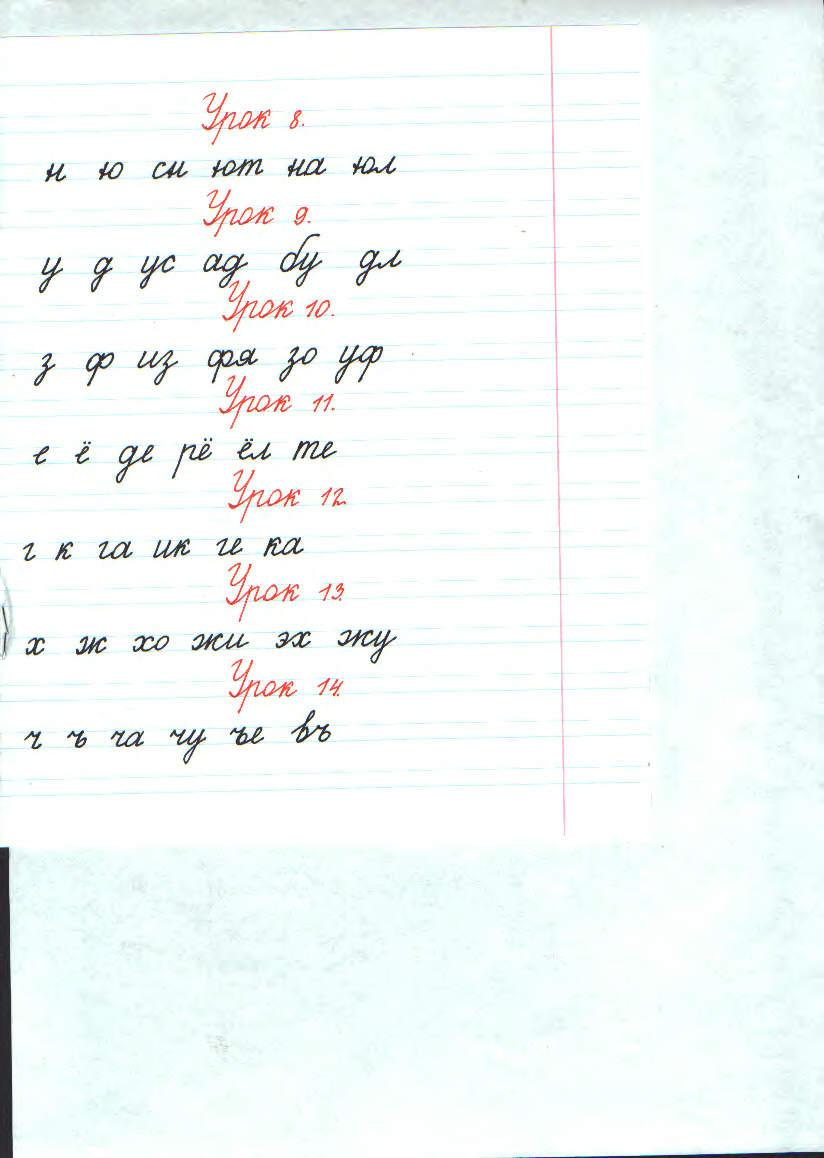 Урок 8.
н ю сн ют на юл
Урок 9.
у д ус ад бу дл
Урок 10.
з ф из фя зо уф
Урок 11.
е ё де рё ёл те
Урок 12.
г к га ик ге ка
Урок 13.
х ж хо жи эх жу
Урок 14.
ч ъ ча чу ъе въ